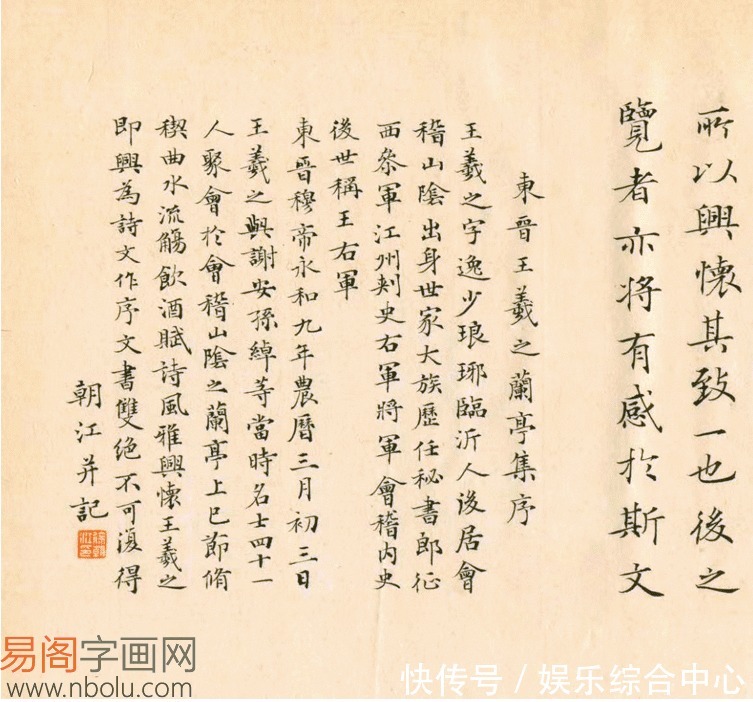 所以興懷其致一也後之
覽者亦將有感於斯文
東晉王羲之蘭亭集序
王羲之字逸少琅琊臨沂人後居會
稽山陰出身世家大族歷任秘書郎征
西叅軍江州刾史右軍將軍會稽内史
後世稱王右軍
東晉穆帝永和九年農曆三月初三日
王羲之與謝安孫綽等當時名士四十一
人聚會於會稽山陰之蘭亭上巳節脩
稧曲水流觴飲酒賦詩風雅興懷王羲之
即興為詩文作序文書雙绝不可復得
朝江并記
易阁字画网
www.nbolu.com
快传号/娱乐综合中心